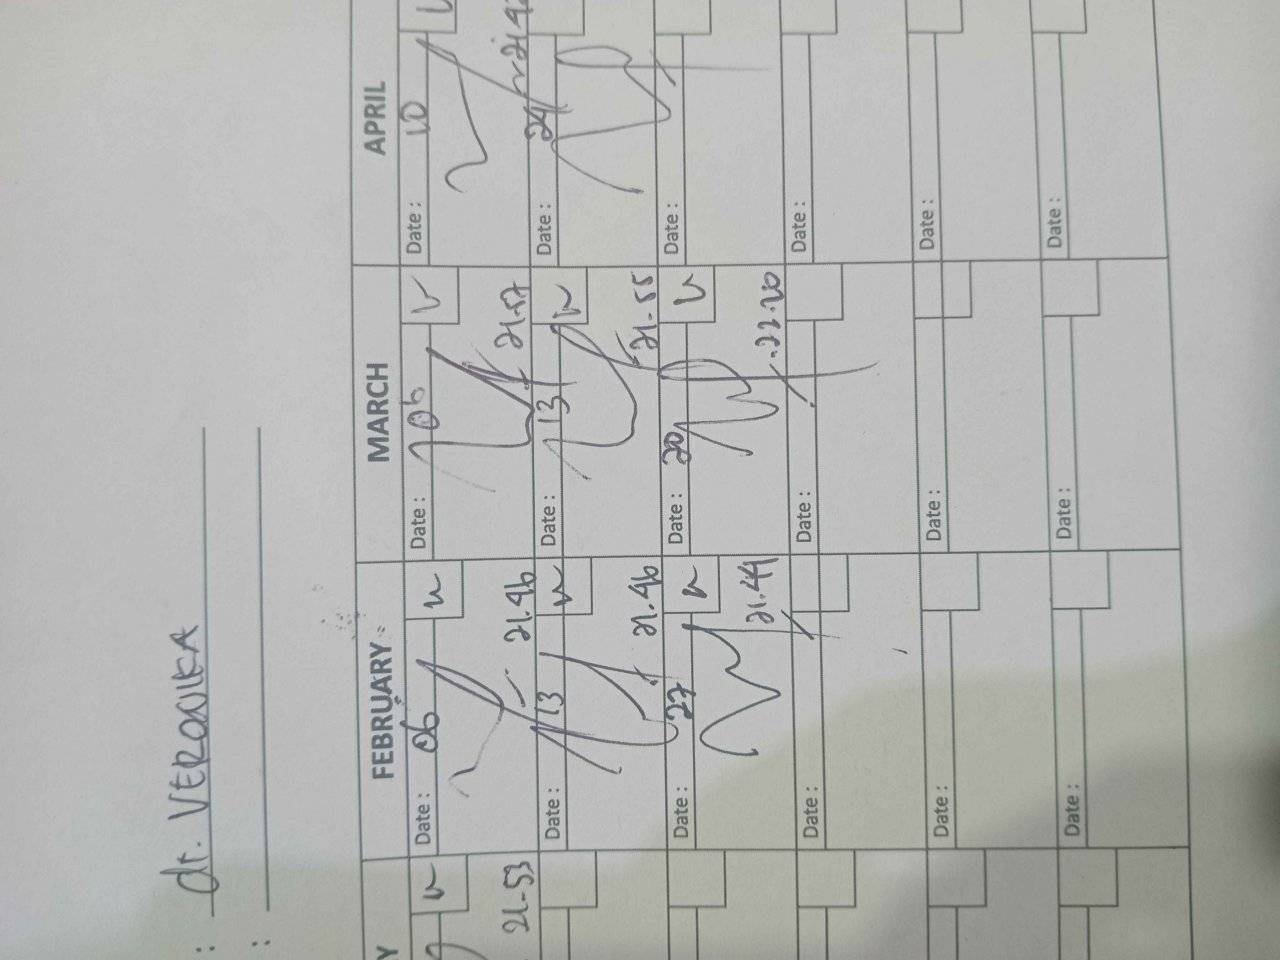 : dr. VERONIKA
:
Y FEBRUARY MARCH APRIL
Date : 06 Date : 06 Date : 10
21.53 21.46 21.57
Date : 13 Date : 13 Date : 24
21.46 21.55
Date : 27 Date : 20 Date :
21.44 22.20
Date : Date : Date :
Date : Date : Date :
Date : Date : Date :